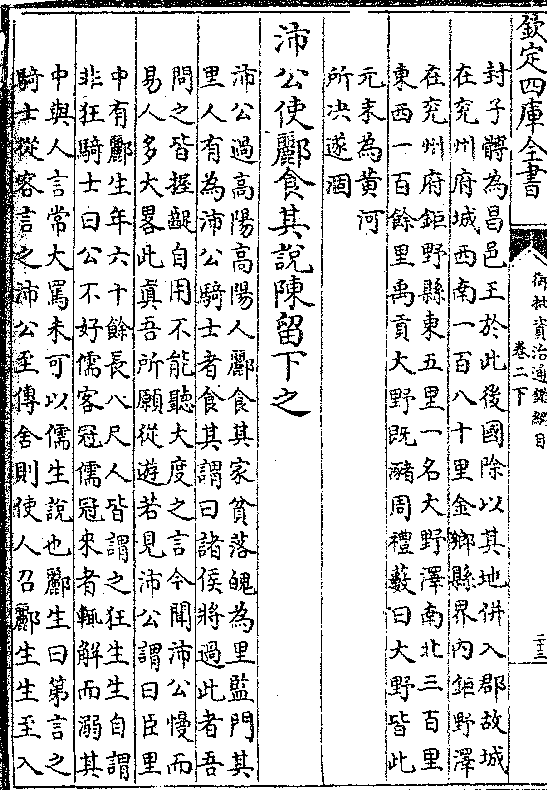 欽定四庫全書
御批資治通鑑綱目
卷二下
二十三
封子髆為昌邑王於此後國除以其地併入郡故城
在兖州府城西南一百八十里金鄉縣界内鉅野澤
在兖州府鉅野縣東五里一名大野澤南北三百里
東西一百餘里禹貢大野既豬周禮藪曰大野皆此
元末為黄河
所决遂涸
沛公使酈食其說陳留下之
沛公過高陽高陽人酈食其家貧落魄為里監門其
里人有為沛公騎士者食其謂曰諸侯將過此者吾
問之皆握齪自用不能聽大度之言今聞沛公慢而
易人多大畧此真吾所願從遊若見沛公謂曰臣里
中有酈生年六十餘長八尺人皆謂之狂生生自謂
非狂騎士曰公不好儒客冠儒冠來者輒解而溺其
中與人言常大罵未可以儒生說也酈生曰第言之
騎士從容言之沛公至傳舍則使人召酈生生至入